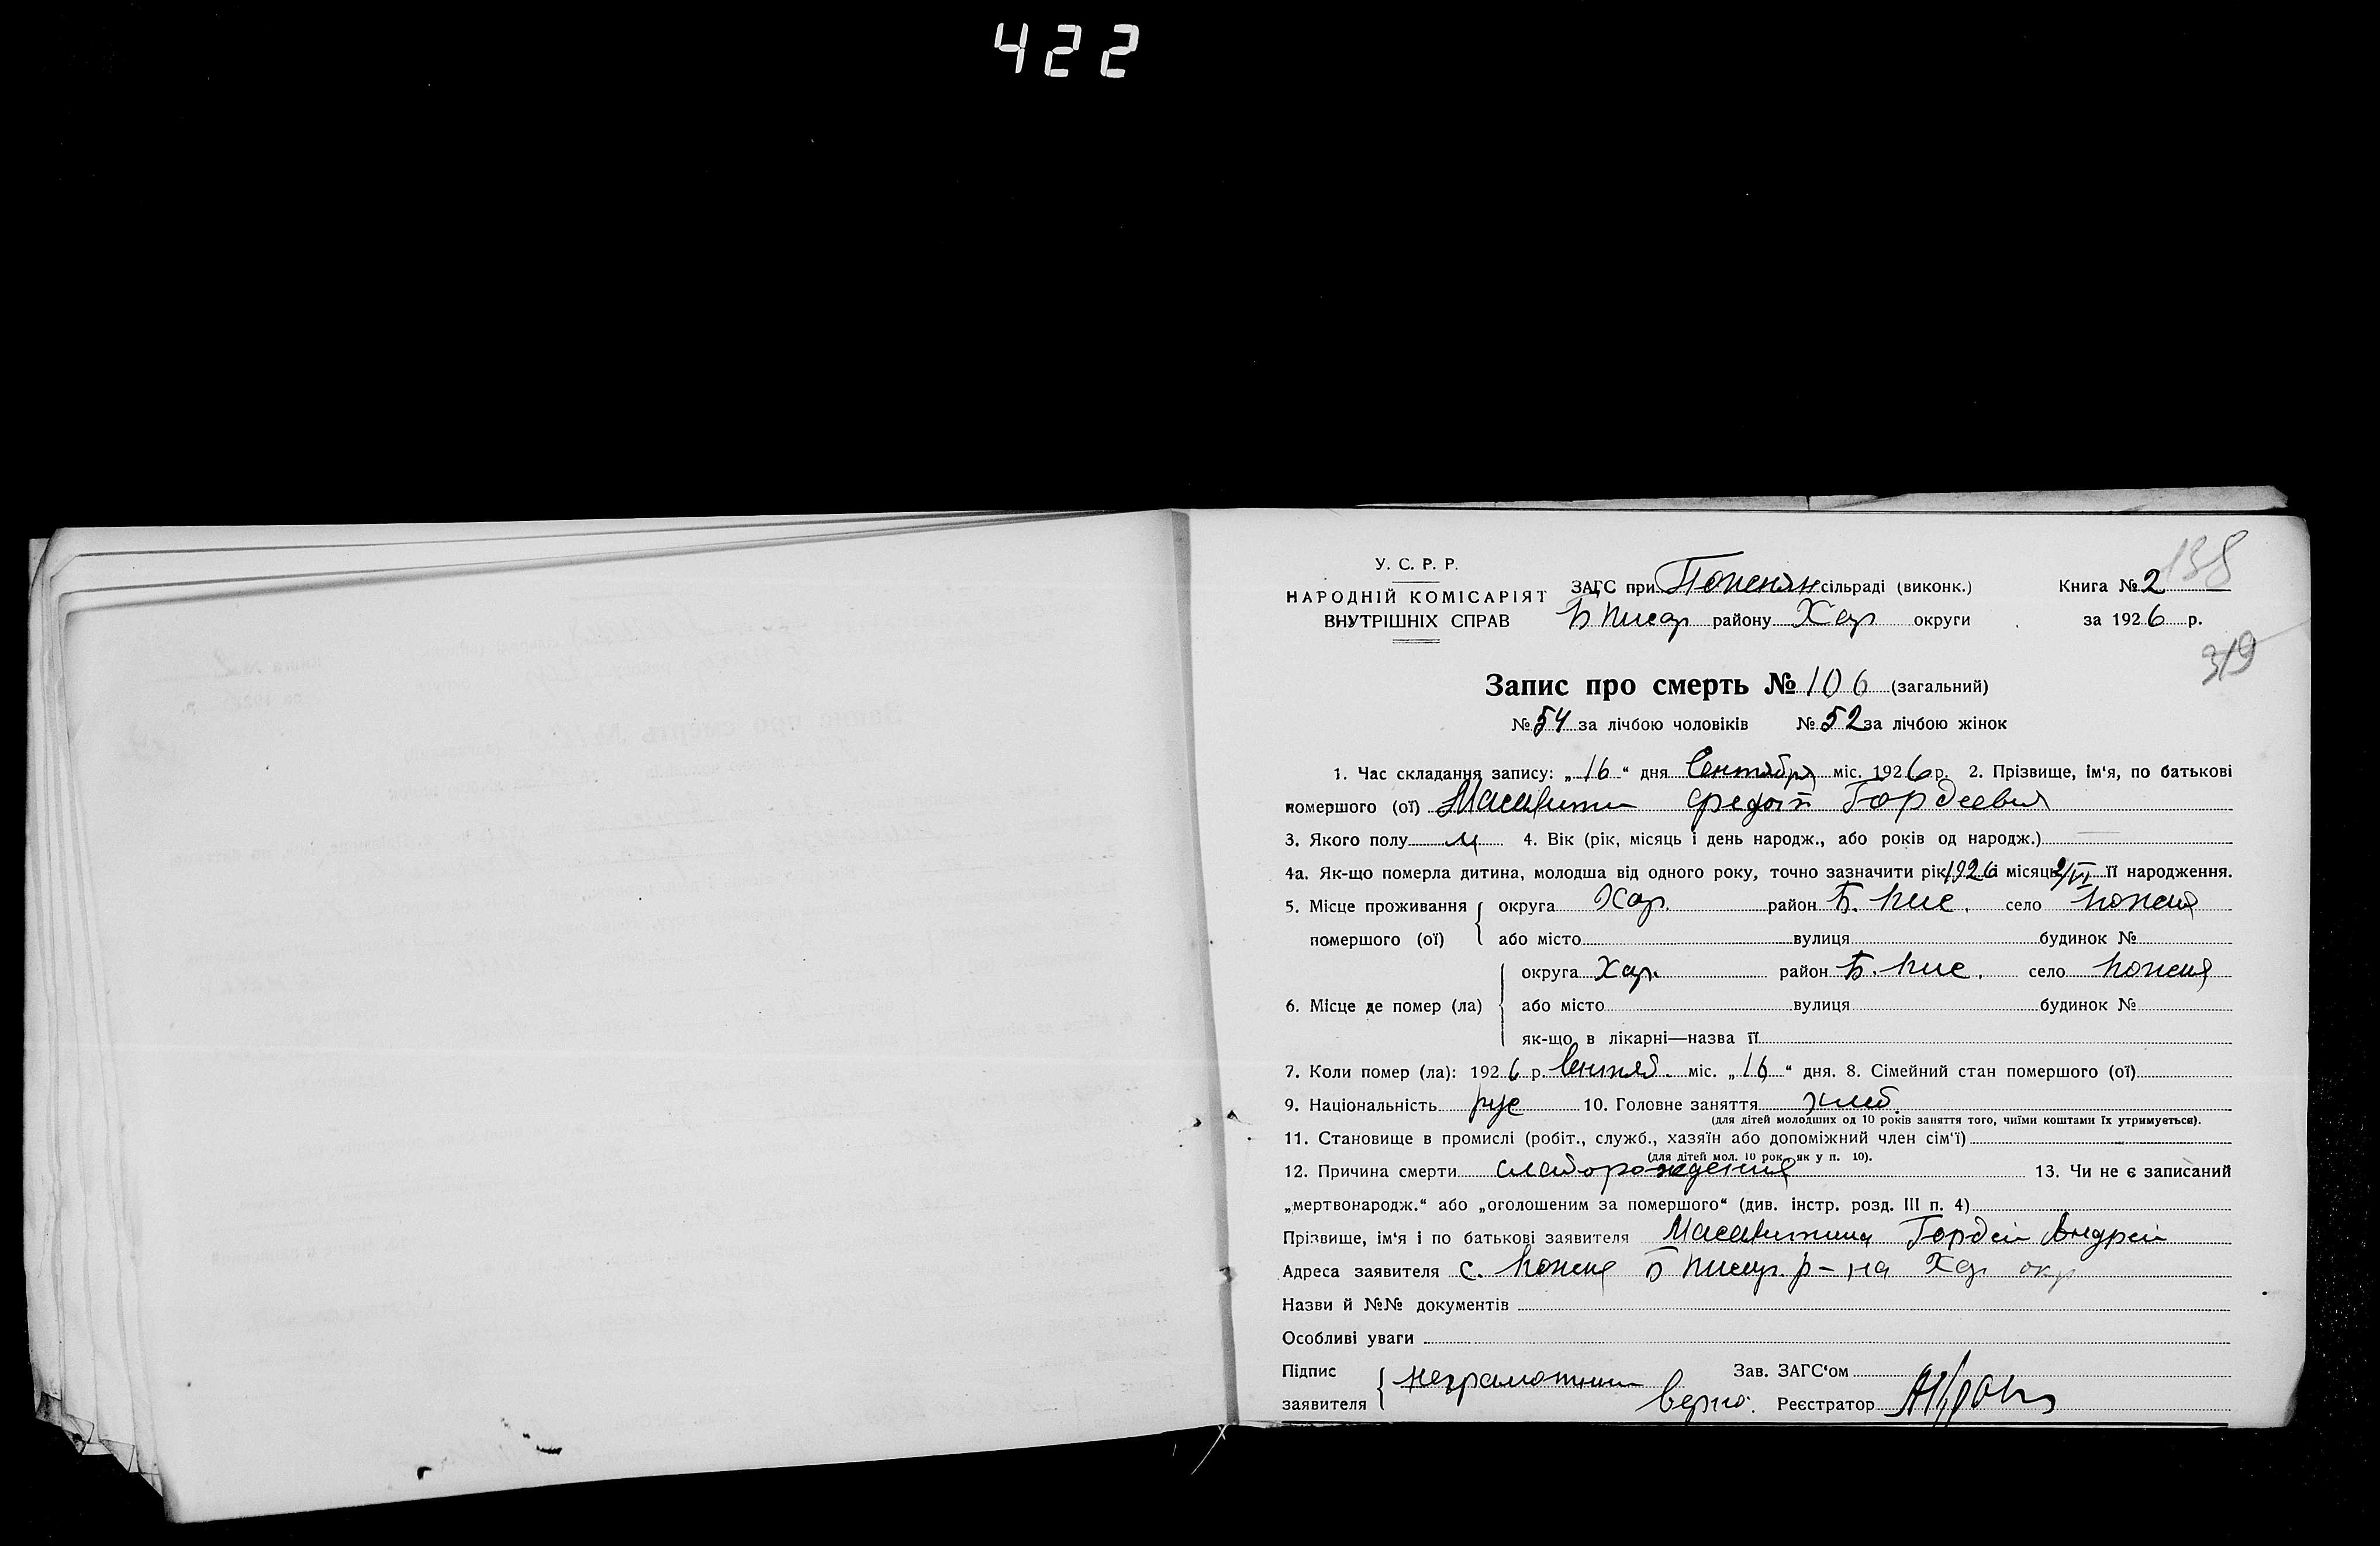 422
138
У. С. Р. Р.
НАРОДНІЙ КОМІСАРІЯТ
ВНУТРІШНІХ СПРАВ
ЗАГС при сільраді (виконк.)
Б Писар району Хар округи
Книга № 2
за 1926 р.
319
Запис про смерть № 106 (загальний)
№ 54 за лічбою чоловіків № 52 за лічбою жінок
1. Час складання запису: „16“ дня Сентября міс. 1926 р. 2. Прізвище, ім‘я, по батькові
помершого (ої) Федот Гордеевич
3. Якого полу м 4. Вік (рік, місяць і день народж., або років од народж.)
4а. Як-що померла дитина, молодша від одного року, точно зазначити рік 1926 і місяць її народження.
5. Місце проживання округа Хар. район Б. Пис. село
помершого (ої) або місто вулиця будинок №
округа Хар. район Б. Пис. село
6. Місце де помер (ла) або місто вулиця будинок №
як-що в лікарні—назва її
7. Коли помер (ла): 1926 р. Сентяб. міс. „16“ дня. 8. Сімейний стан помершого (ої)
9. Національність рус 10. Головне заняття хлеб.
(для дітей молодших од 10 років заняття того, чиїми коштами їх утримується).
11. Становище в промислі (робіт., служб., хазяїн або допоміжний член сім‘ї)
(для дітей мол. 10 рок., як у п. 10).
12. Причина смерти слаборождения 13. Чи не є записаний
„мертвонародж.“ або „оголошеним за помершого“ (див. інстр. розд. III п. 4)
Прізвище, ім‘я і по батькові заявителя Гордей Андрей
Адреса заявителя с. Б Писар. р-на Хар окр
Назви й №№ документів
Особливі уваги
Підпис
заявителя неграмотный
Зав. ЗАГС‘ом
верно: Реєстратор